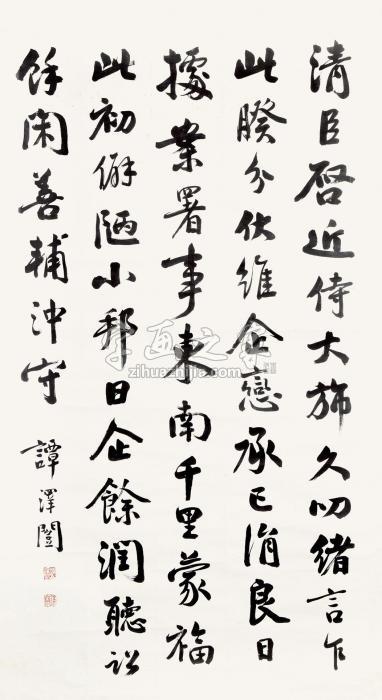 清臣啓近侍大旆久叨緒言乍
此暌分伏維企戀承已涓良日
據案署事東南千里蒙福
此初僻陋小邦日企餘潤聽訟
餘閑善輔沖守
譚澤闓
字画之家
zihuazhijia.com